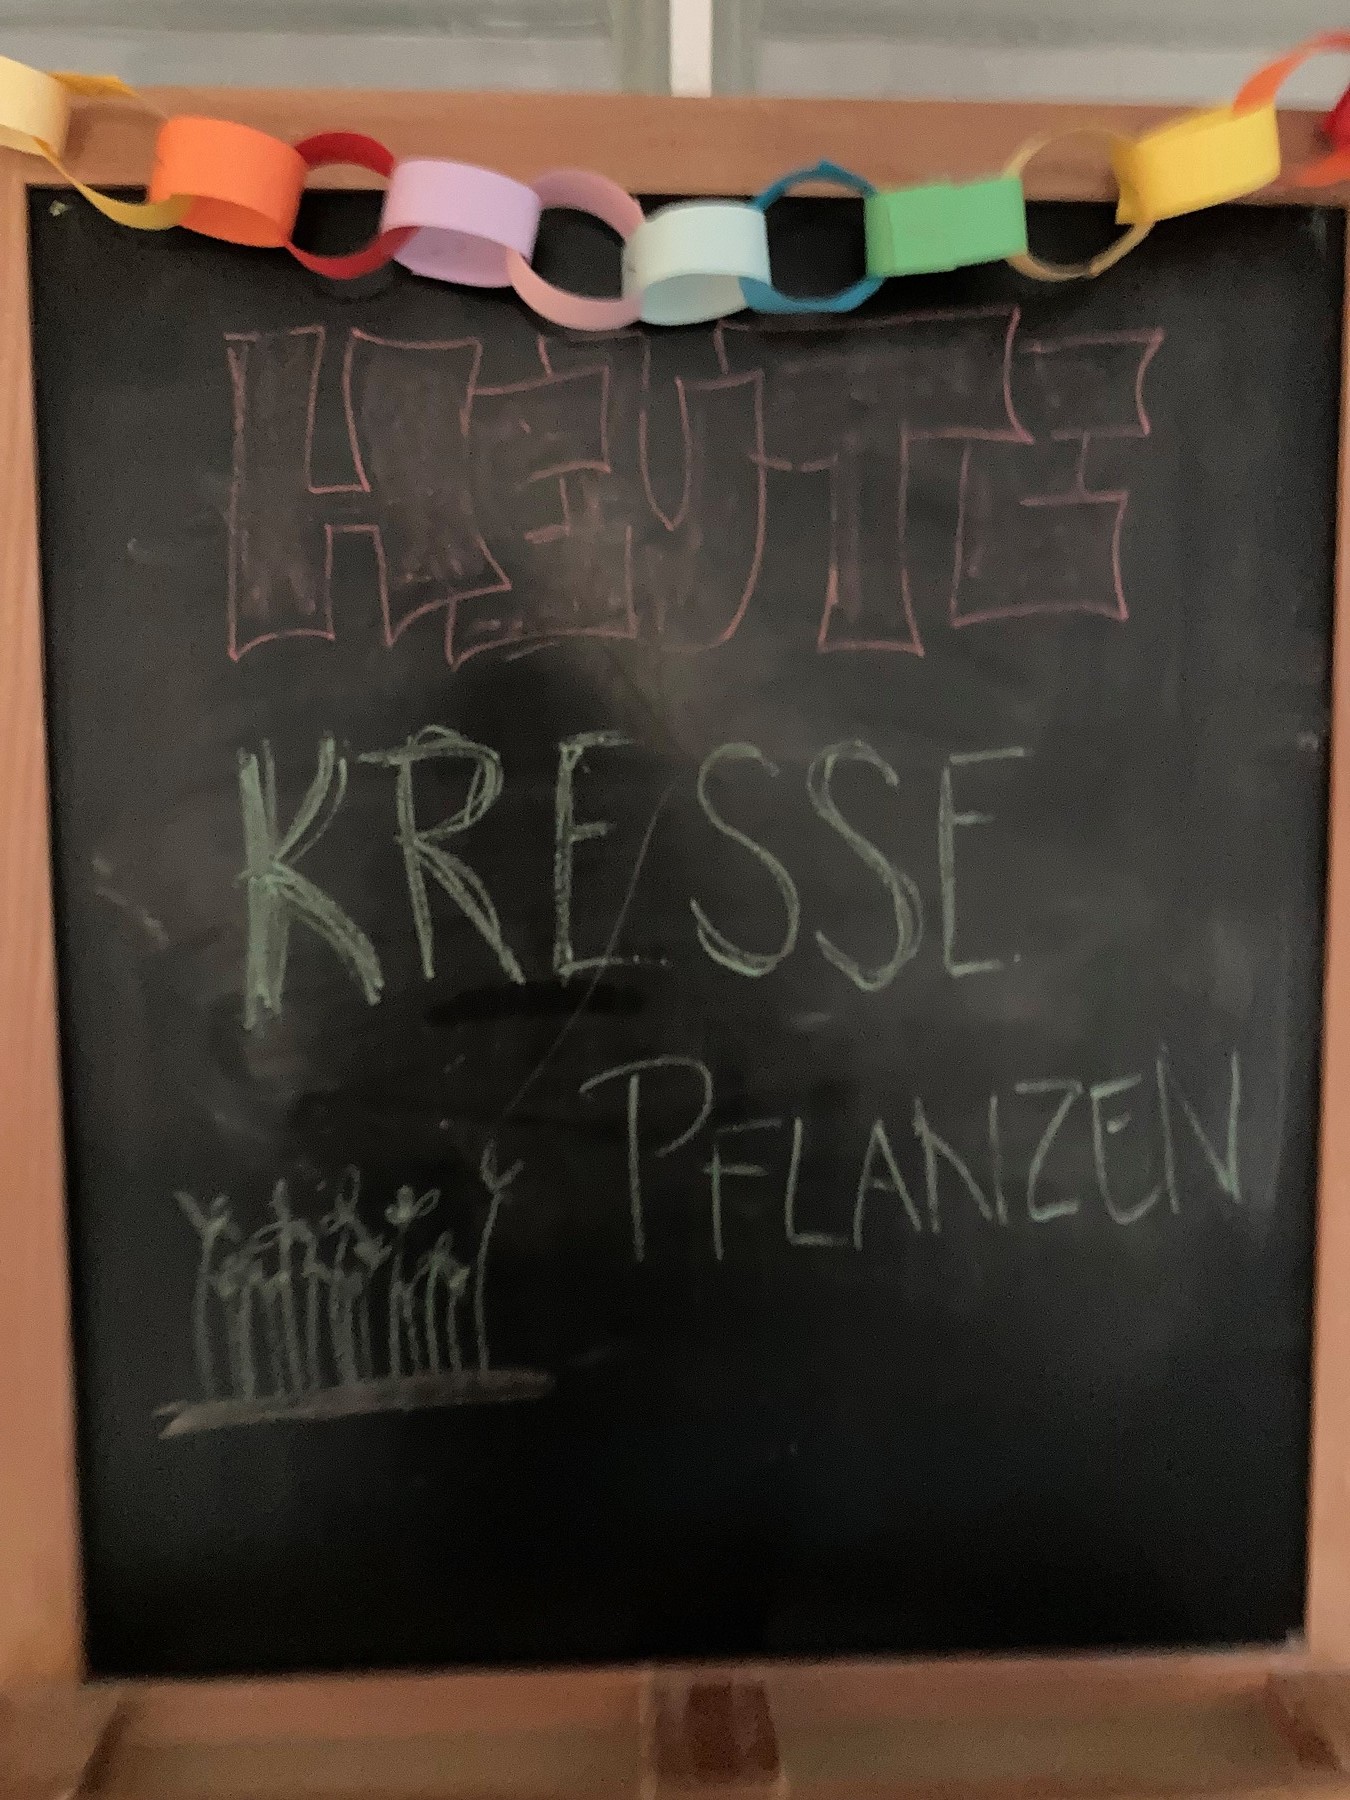 HEUTE
KRESSE
PFLANZEN